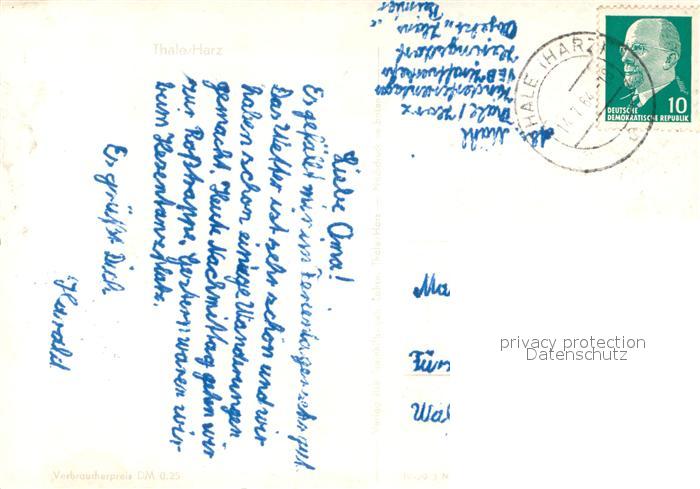 Thale/Harz
Liebe Oma!
Es gefällt mir im Ferienlager sehr gut.
Das Wetter ist sehr schön und wir
haben schon einige Wanderungen
gemacht. Heute Nachmittag gehen wir
zur Roßtrappe. Gestern waren wir
beim Hexentanzplatz.
Es grüßt Dich
Harald
Verbraucherpreis DM 0,25
Thale / Harz
Kinderferienlager
VEB Kraftverkehr
THALE (HARZ)
10
DEUTSCHE
DEMOKRATISCHE REPUBLIK
Ma
privacy protection
Datenschutz